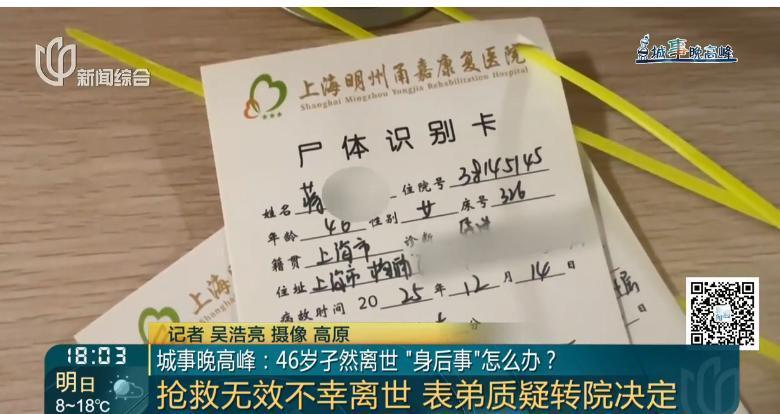 新闻综合
城事晚高峰
上海明州甬嘉康复医院
Shanghai Mingzhou Yongjia Rehabilitation Hospital
尸体识别卡
姓名 蒋 住院号 38145145
年龄 46 性别 女 床号 326
籍贯 上海市 诊断
住址 上海市
病故时间 2025年12月14日
分
上海明
记者 吴浩亮 摄像 高原
18:03
城事晚高峰：46岁孑然离世 "身后事"怎么办？
明日
8~18℃
抢救无效不幸离世 表弟质疑转院决定